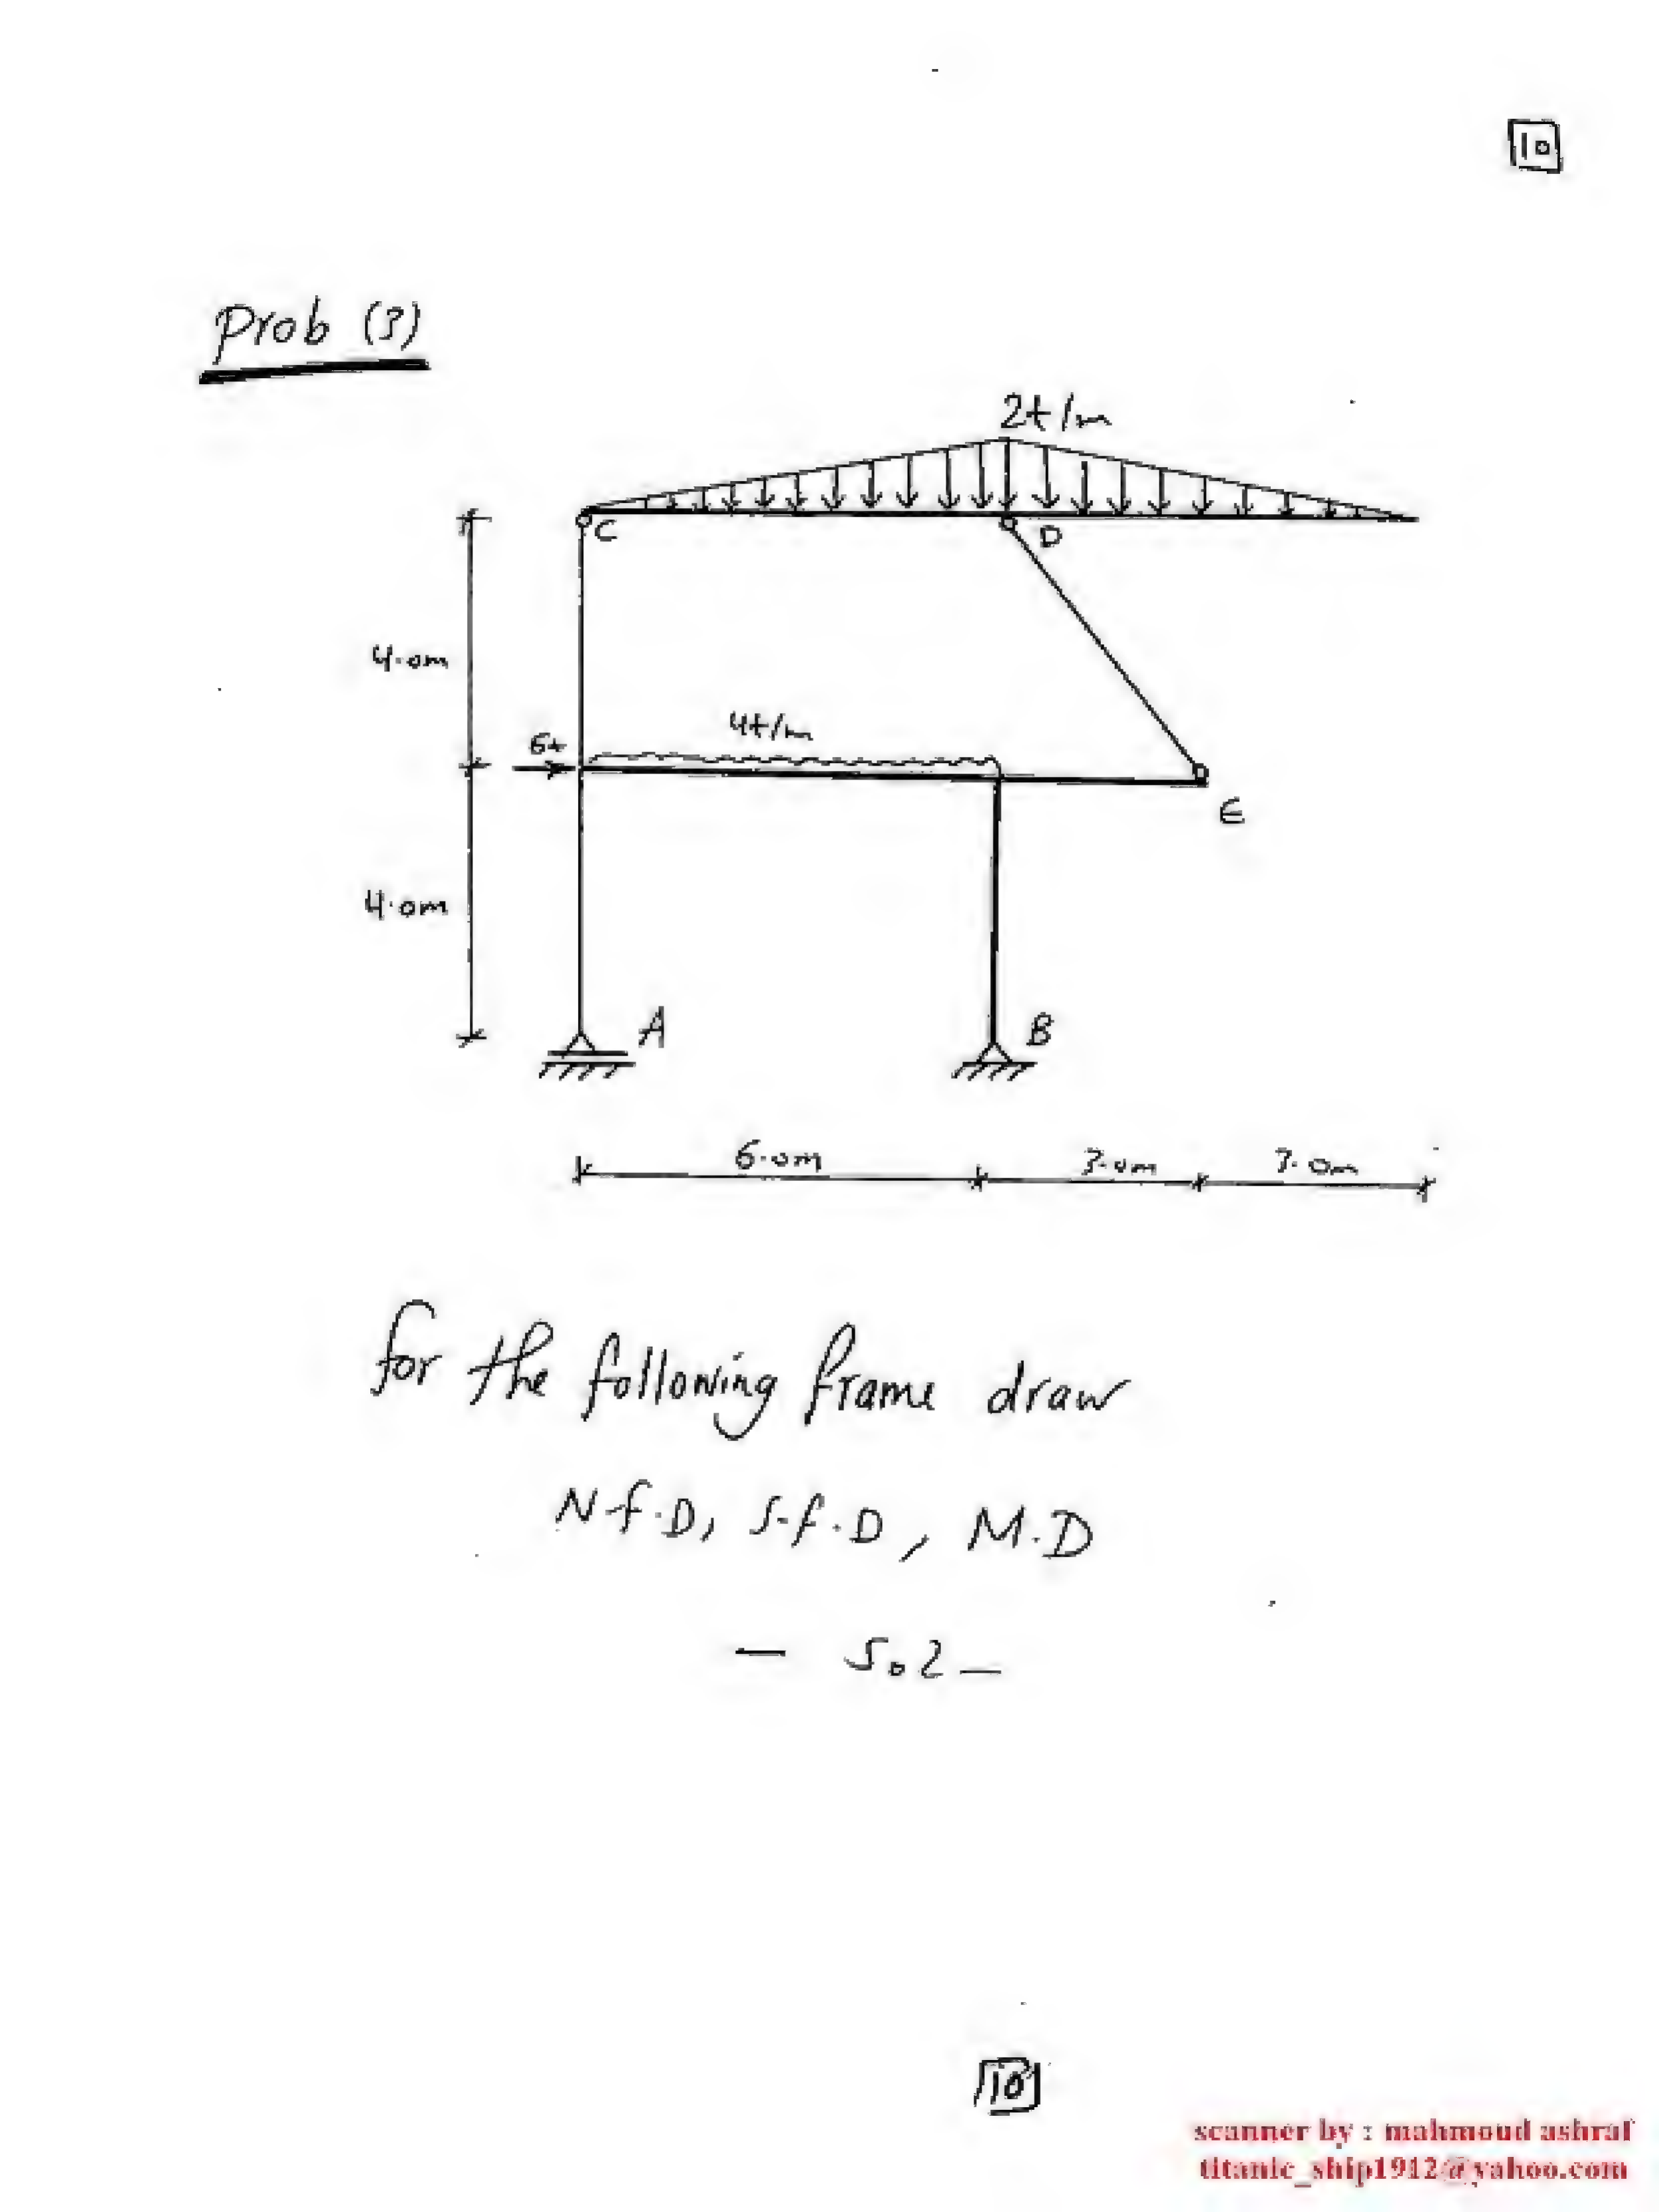 10
Prob (3)
2t/m
C
D
4.0m
4t/m
6t
E
4.0m
A
B
6.0m 3.0m 3.0m
for the following frame draw
N.f.D, S.f.D, M.D
— Sol —
10
scanner by : mahmoud ashraf
titanic_ship1912@yahoo.com